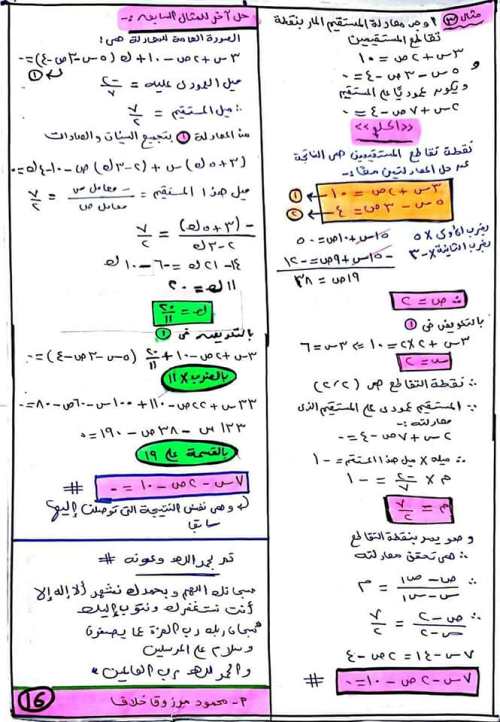 مثال ③ أوجد معادلة المستقيم المار بنقطة
تقاطع المستقيمين
٣س + ٢ص = ١٠
٥س - ٣ص - ٤ = ٠
ويكون عموديًا على المستقيم
٢س + ٧ص - ٤ = ٠
<< الحل >>
نقطة تقاطع المستقيمين هى الناتجة
عن حل المعادلتين معًا :-
٣س + ٢ص = ١٠ ← ①
٥س - ٣ص = ٤ ← ②
بضرب الأولى × ٥
بضرب الثانية × -٣
١٥س + ١٠ص = ٥٠
-١٥س + ٩ص = -١٢
١٩ص = ٣٨
∴ ص = ٢
بالتعويض فى ①
٣س + ٢×٢ = ١٠ => ٣س = ٦
س = ٢
∴ نقطة التقاطع هى (٢،٢)
∵ المستقيم عمودى على المستقيم الذى
معادلته :-
٢س + ٧ص - ٤ = ٠
∴ ميله × ميل هذا المستقيم = -١
م × -٢/٧ = -١
م = ٧/٢
وهو يمر بنقطة التقاطع
∴ هى تحقق معادلته
∴ ص - ص١ / س - س١ = م
ص - ٢ / س - ٢ = ٧/٢
٧س - ١٤ = ٢ص - ٤
٧س - ٢ص - ١٠ = ٠ #
حل آخر للمثال السابق :-
الصورة العامة للمعادلة هى :
٣س + ٢ص - ١٠ + ك (٥س - ٣ص - ٤) = ٠
← ①
ميل العمودى عليه = -٢/٧
∴ ميل المستقيم = ٧/٢
من المعادلة ① بتجميع السينات والصادات
(٣ + ٥ك) س + (٢ - ٣ك) ص - ١٠ - ٤ك = ٠
ميل هذا المستقيم = - معامل س / معامل ص = ٧/٢
-(٣ + ٥ك) / ٢ - ٣ك = ٧/٢
١٤ - ٢١ك = -٦ - ١٠ك
١١ك = ٢٠
ك = ٢٠/١١
بالتعويض فى ①
٣س + ٢ص - ١٠ + ٢٠/١١ (٥س - ٣ص - ٤) = ٠
بالضرب × ١١
٣٣س + ٢٢ص - ١١٠ + ١٠٠س - ٦٠ص - ٨٠ = ٠
١٣٣س - ٣٨ص - ١٩٠ = ٠
بالقسمة على ١٩
٧س - ٢ص - ١٠ = ٠ #
وهى نفس النتيجة التى توصلت إليها
سابقا
تم بحمد الله وعونه #
سبحانك اللهم وبحمدك نشهد ألا إله إلا
أنت نستغفرك ونتوب إليك
"سبحان ربك رب العزة عما يصفون
وسلام على المرسلين
والحمد لله رب العالمين"
١٦
م- محمود مرزوق خلاف